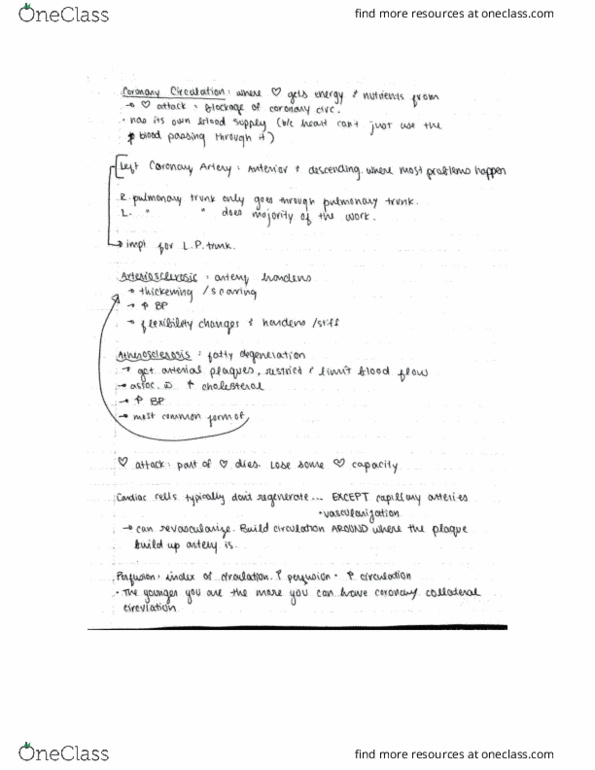 OneClass
find more resources at oneclass.com
Coronary Circulation: where ♡ gets energy & nutrients from
→ ♡ attack: blockage of coronary circ.
• has its own blood supply (b/c heart can't just use the
blood passing through it)
Left Coronary Artery: Anterior & descending. where most problems happen
R. pulmonary trunk only goes through pulmonary trunk.
L. " " does majority of the work.
→ impt for L.P. trunk.
Arteriosclerosis: artery hardens
→ thickening / scarring
→ ↑ BP
→ flexibility changes & hardens / stiff
Atherosclerosis: fatty degeneration
→ get arterial plaques, restrict & limit blood flow
→ assoc. w ↑ cholesteral
→ ↑ BP
→ most common form of
♡ attack: part of ♡ dies. Lose some ♡ capacity
Cardiac cells typically don't regenerate... EXCEPT capillary arteries
• vascularization
→ can revascularize. Build circulation AROUND where the plaque
build up artery is.
Perfusion: index of circulation. ↑ perfusion = ↑ circulation
• The younger you are the more you can have coronary collateral
circulation
OneClass
find more resources at oneclass.com